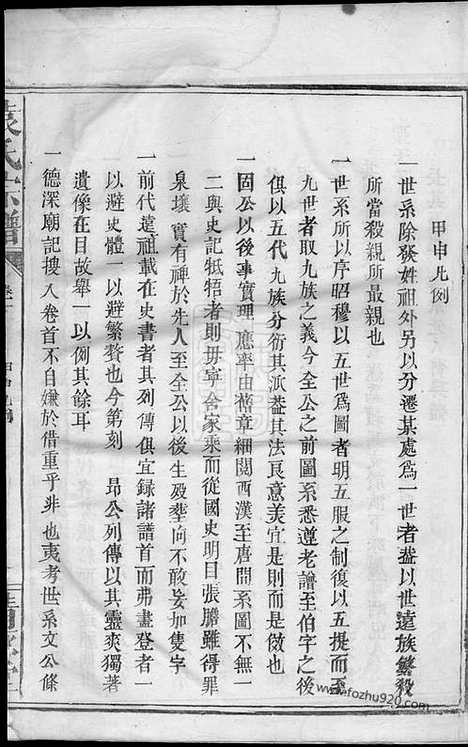 甲申凡例
一世系除發姓祖外另以分遷某處爲一世者蓋以世遠族繁殺
所當殺親所最親也
一世系所以序昭穆以五世爲圖者明五服之制復以五提而至
九世者取九族之義今全公之前圖系悉遵老譜至伯字之後
俱以五代九族分衍其派蓋其法良意美宜是則而是倣也
一固公以後事實理應率由舊章細閱西漢至唐間系圖不無一
二與史記牴牾者則毋寧舍家乘而從國史明目張膽雖得罪
泉壤實有裨於先人至全公以後生歿塋向不敢妄加隻字
一前代遠祖載在史書者其列傳俱宜錄諸譜首而弗盡登者一
以避史體一以避繁贅也今第刻 昂公列傳以其靈爽獨著
遺像在目故舉一以例其餘耳
一德深廟記搜入卷首不自嫌於借重乎非也夷考世系文公條
袁氏宗譜
卷一
甲申凡例
www.fozhu920.com